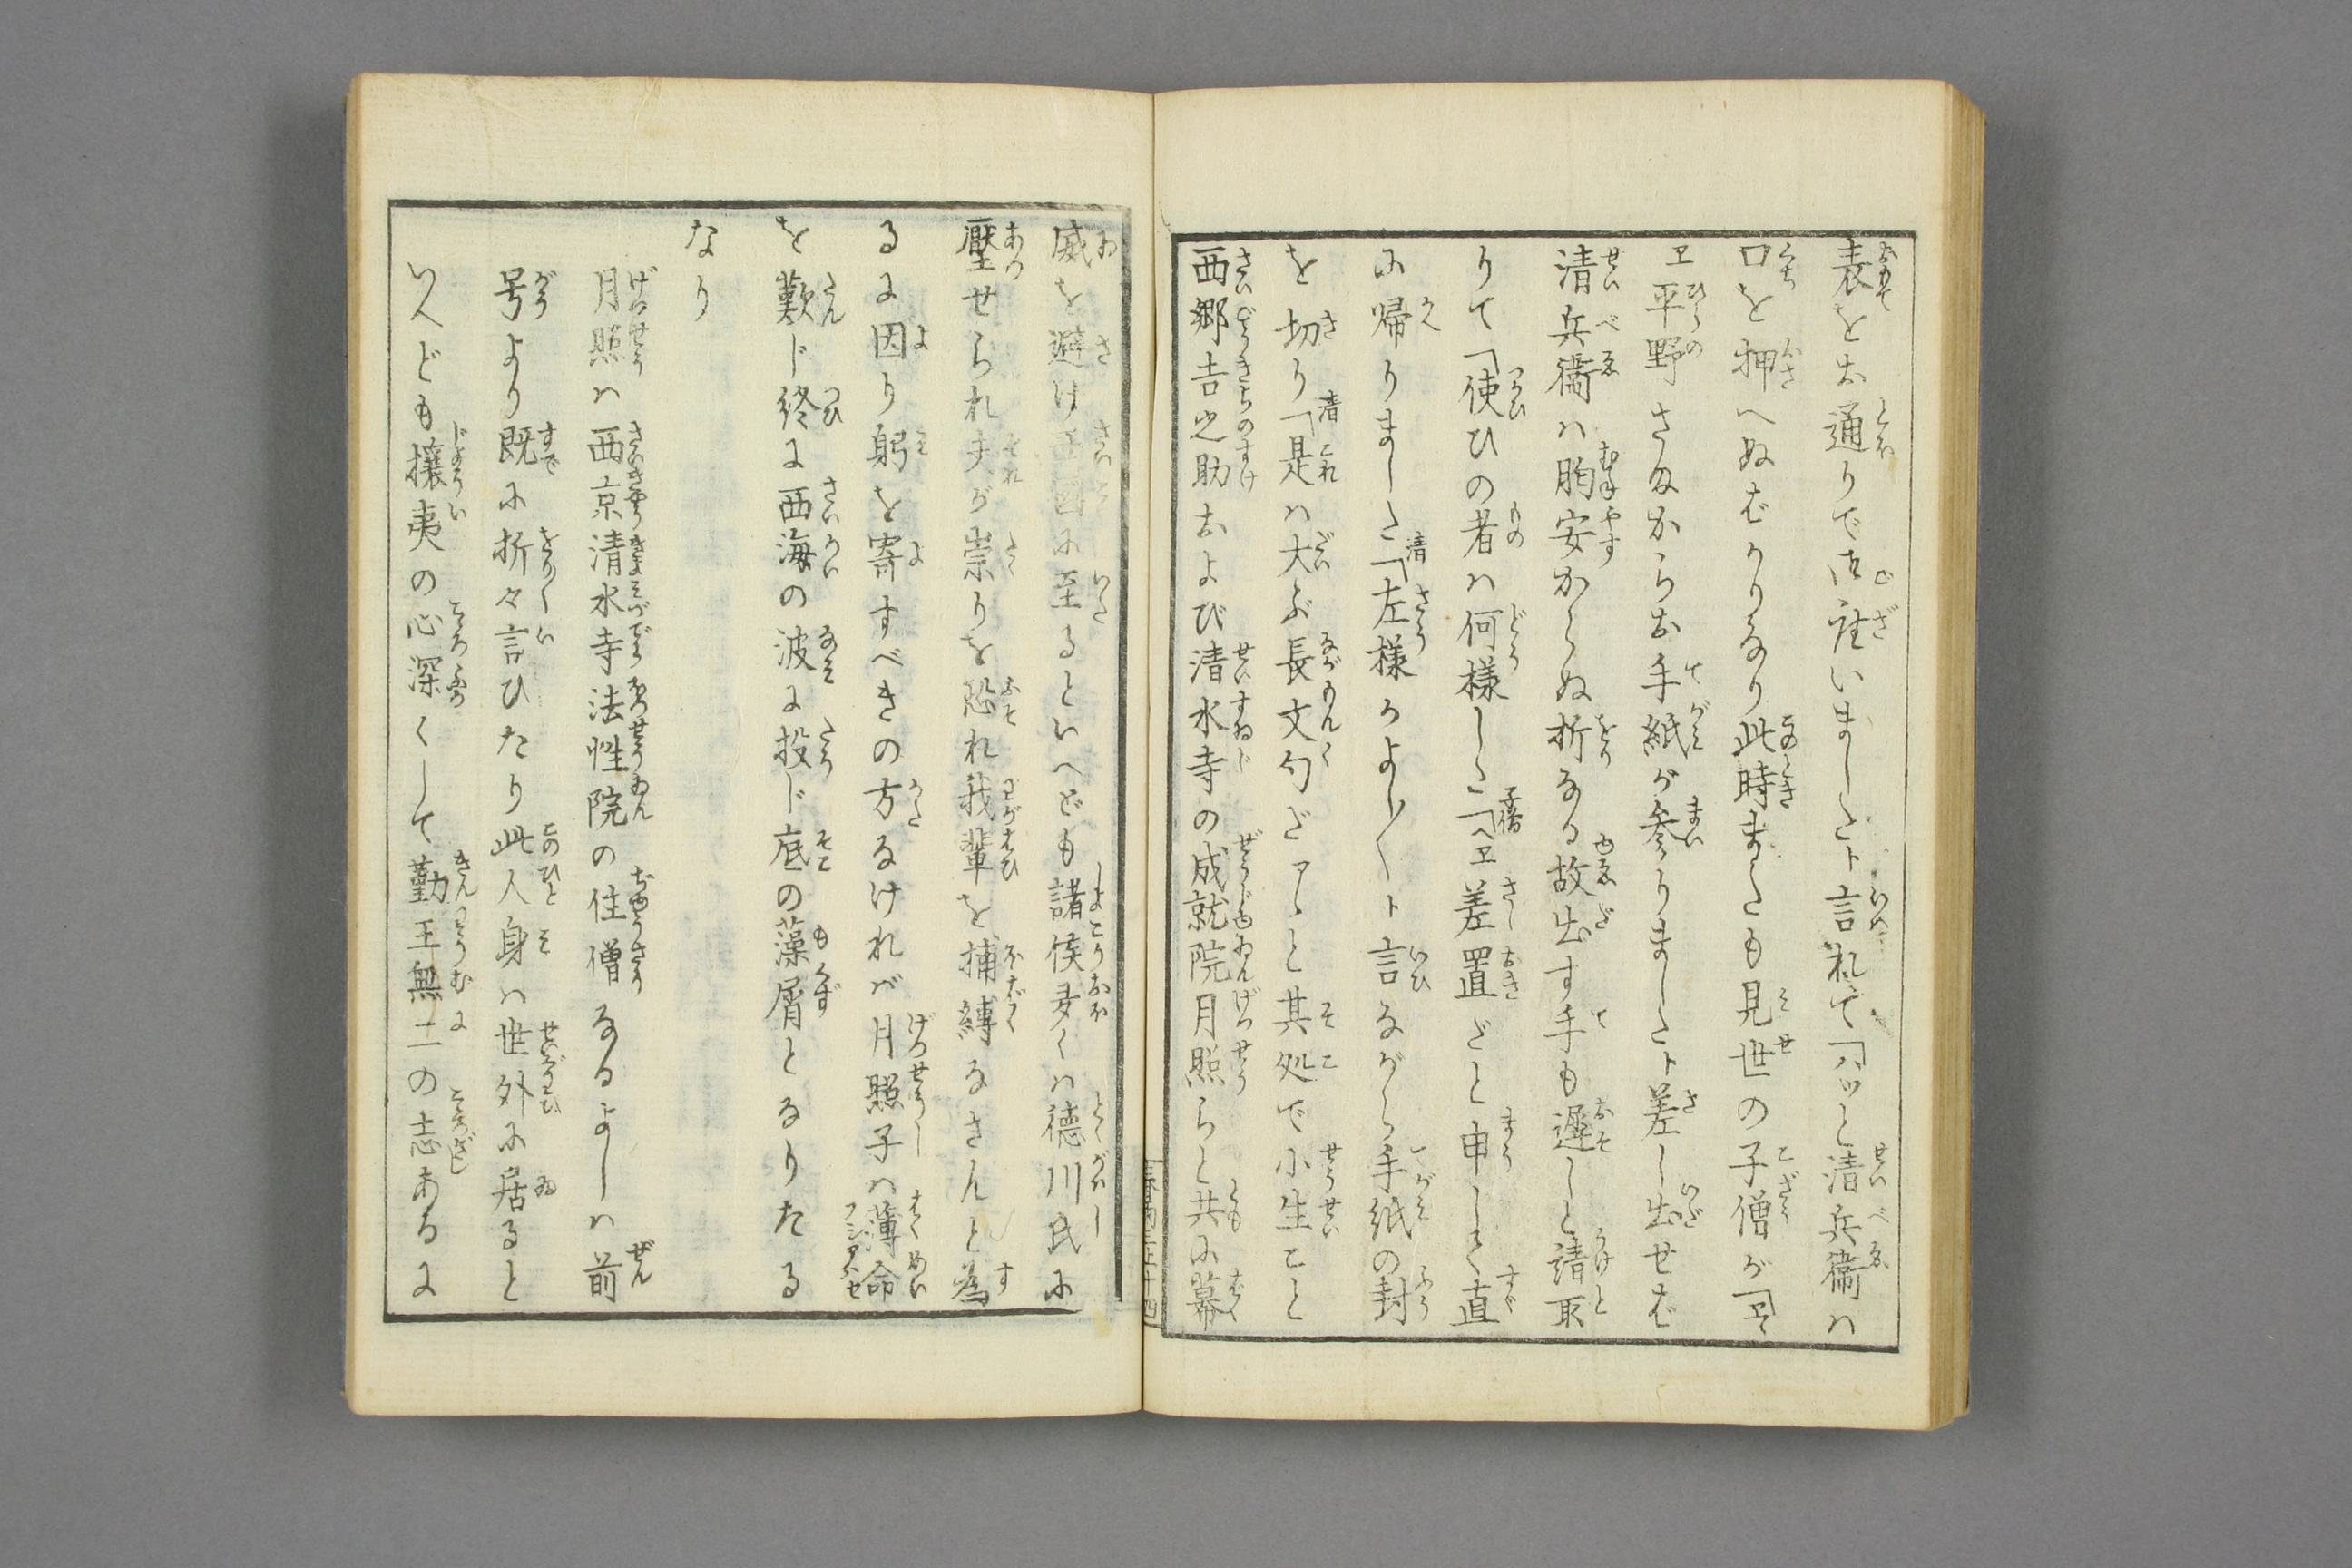 表をお通りで御座いましたト言れて「ハツと清兵衞ハ
口を押へぬばかりなり此時またも見世の子僧が「ヱ
ヱ平野さまからお手紙が参りましたト差し出せば
清兵衞ハ胸安からぬ折なる故出す手も遅しと請取
りて「使ひの者ハ何様した「ヘヱ差置だと申しく直
に帰りました「左様かよし〳〵ト言ながら手紙の封
を切り「是ハ大ぶ長文句だアヽと其処で小生ことと
西郷吉之助および清水寺の成就院月照らと共に幕
威を避け西國に至るといへども諸侯多くハ徳川氏に
壓せられ夫が崇りを恐れ我輩を捕縛なさんと為
るに因り躬を寄すべきの方なければ月照子ハ薄命
を歎じ終に西海の波に投じ底の藻屑となりたる
なり
月照ハ西京清水寺法性院の住僧なるよしハ前
号より既に折々言ひたり此人身ハ世外に居ると
いへども攘夷の心深くして勤王無二の志あるに